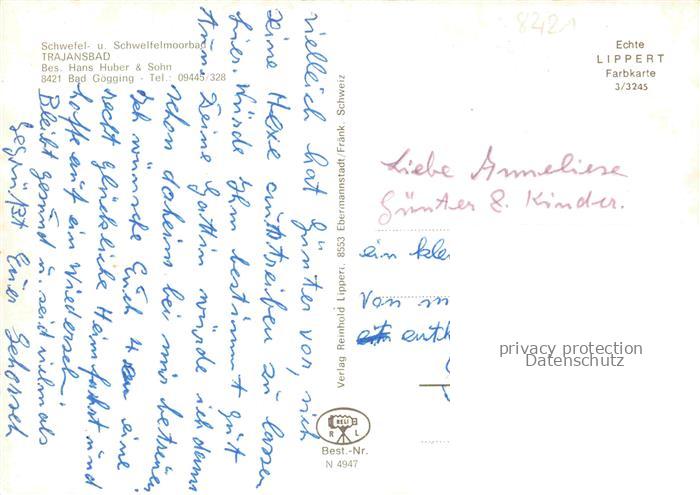 8421
Schwefel- u. Schwelfelmoorbad
TRAJANSBAD
Bes. Hans Huber & Sohn
8421 Bad Gögging - Tel.: 09445/328
Echte
LIPPERT
Farbkarte
3/3245
Liebe Anneliese
Günter & Kinder.
ein kle
von m
enth
vielleich hat Günter vor, sich
seine Hexe austreiben zu lassen
hier. Würde ihm bestimmt gut
tun. Deine Gattin würde ich dann
schon daheim bei mir betreuen
Ich wünsche Euch 4 eine
recht glückliche Heimfahrt und
hoffe auf ein Wiederseh.
Bleibt gesund u. seid vielmals
gegrüßt Euer
Verlag Reinhold Lippert, 8553 Ebermannstadt/Fränk. Schweiz
RELI
R L
Best.-Nr.
N 4947
privacy protection
Datenschutz